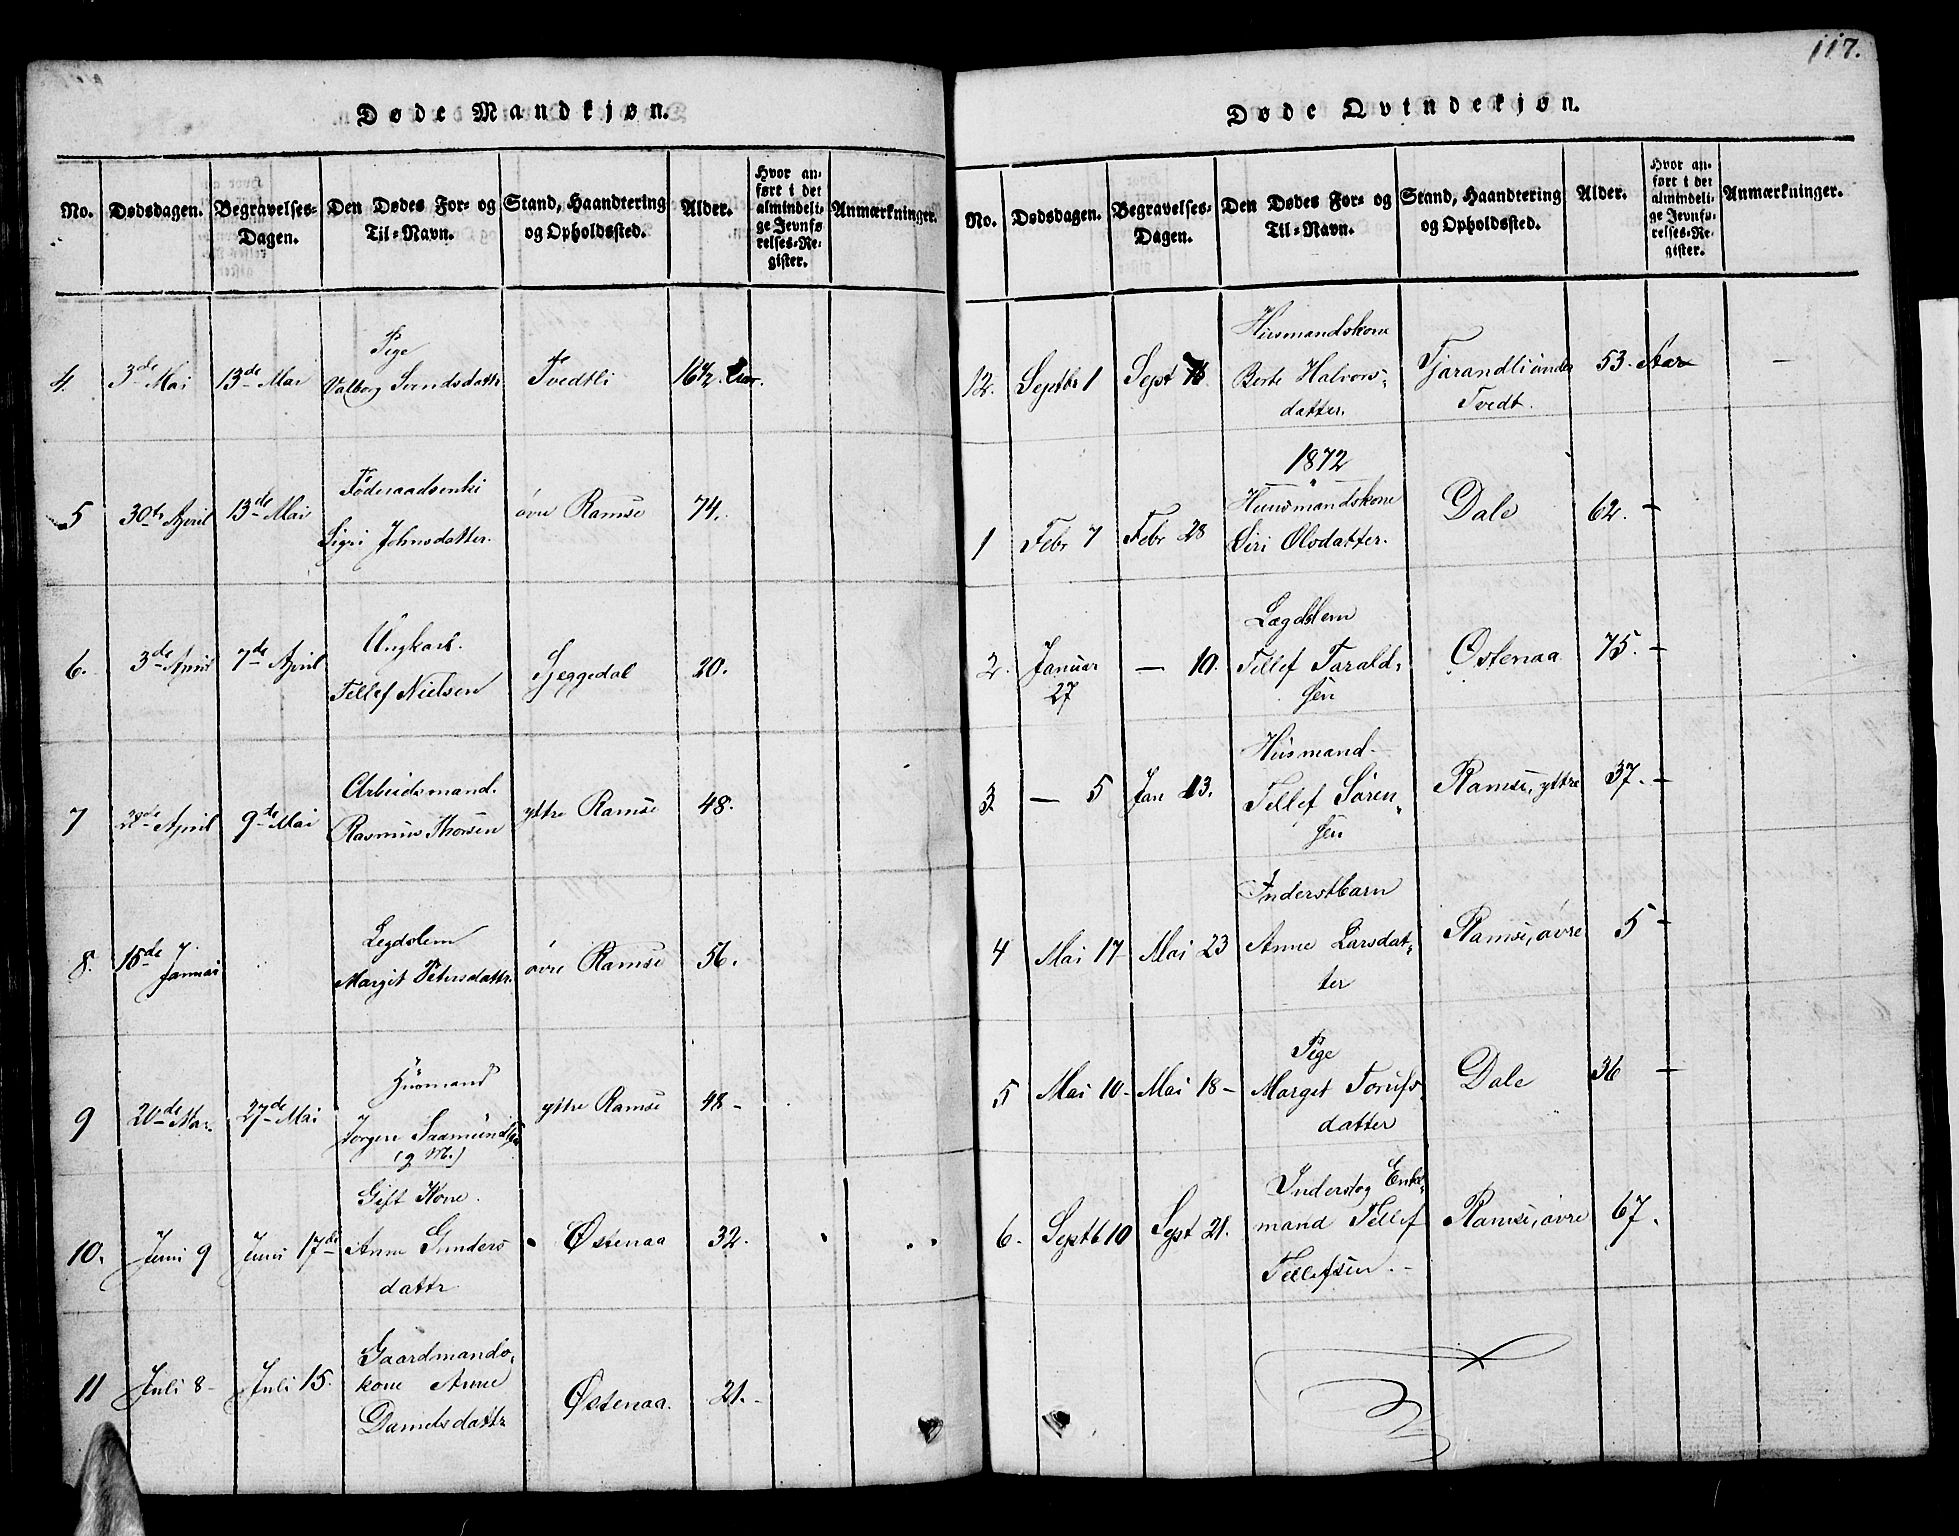 117.
Døde Mandkjøn.
No. Dødsdagen. Begravelses-Dagen. Den Dødes For- og Til-Navn. Stand, Haandtering og Opholdssted. Alder. Hvor anført i det almindelige Jevnførelses-Register. Anmærkninger.
4. 3de Mai 13de Mai Pige
Valborg Svendsdattr Tvedtli 16 1/2 Aar.
5 30te April 13de Mai Føderaadsenke
Sigri Johnsdatter. övre Ramse 74.
6. 3de April 7de April Ungkarl.
Tellef Nielsen Heggedal 20.
7 28de April 9de Mai Arbeidsmand.
Rasmus Thorsen yttre Ramse 48.
8. 15de Januar Legdslem
Margit Petersdattr. övre Ramse 56.
9 20de Mai 27de Mai Husmand
Jörgen Saamundsen
(g M.) yttre Ramse 48 -
10. Juni 9 Juni 17de Gift Kone.
Anne Gunders
dattr Østenaa 32.
11 Juli 8 - Juli 15. Gaardmands-
kone Anne
Danielsdattr Østenaa. 21. -
Døde Qvindekjøn.
No. Dødsdagen. Begravelses-Dagen. Den Dødes For- og Til-Navn. Stand, Haandtering og Opholdssted. Alder. Hvor anført i det almindelige Jevnførelses-Register. Anmærkninger.
12. Septbr 1 Sept Husmandskone
Berte Halvors-
datter. Tjarandli under
Tvedt. 53. Aar -
1872
1 Febr 7 Febr 28 Huusmandskone
Siri Olsdatter. Dale 62. -
2. Januar
27 — 10. Lægdslem
Tellef Tarald-
sen Ostenaa 75. -
3 — 5 Jan 13. Husmand
Tellef Sören-
sen Ramse, yttre 37. -
4 Mai 17 - Mai 23 Inderstbarn
Anne Larsdat-
ter Ramse, övre 5 -
5 Mai 10 - Mai 18 - Pige
Marget
datter Dale 36 -
6. Septb 10 Sept 21. Inderst og Enke-
mand Tellef
Tellefsen. - Ramse, övre 67.